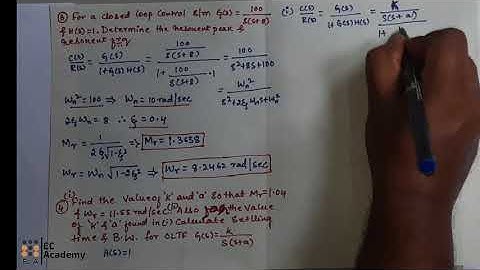 ③ For a closed loop control s/m G(s) = 100/S(S+8)
& H(s)=1. Determine the resonant peak &
resonant frq.
C(s)/R(s) = G(s)/1+G(s)H(s) = 100/S(S+8) / 1+ 100/S(S+8) .1 = 100/S²+8S+100
Wn² = 100 ⇒ Wn = 10 rad/sec = Wn²/S²+2ξWnS+Wn²
2ξWn = 8 ∴ ξ = 0.4
Mr = 1/2ξ√1-ξ² ⇒ Mr = 1.3638
Wr = Wn√1-2ξ² ⇒ Wr = 8.2462 rad/sec
④ (i) Find the value of 'k' and 'a' so that Mr = 1.04
& Wr = 11.55 rad/sec. (ii) Also the value
of 'k' & 'a' found in (i) Calculate Settling
time & B.W. for OLTF G(s) = k/S(S+a)
H(s)=1
(i) C(s)/R(s) = G(s)/1+G(s)H(s) = K/S(S+a) / 1+
EC
Academy